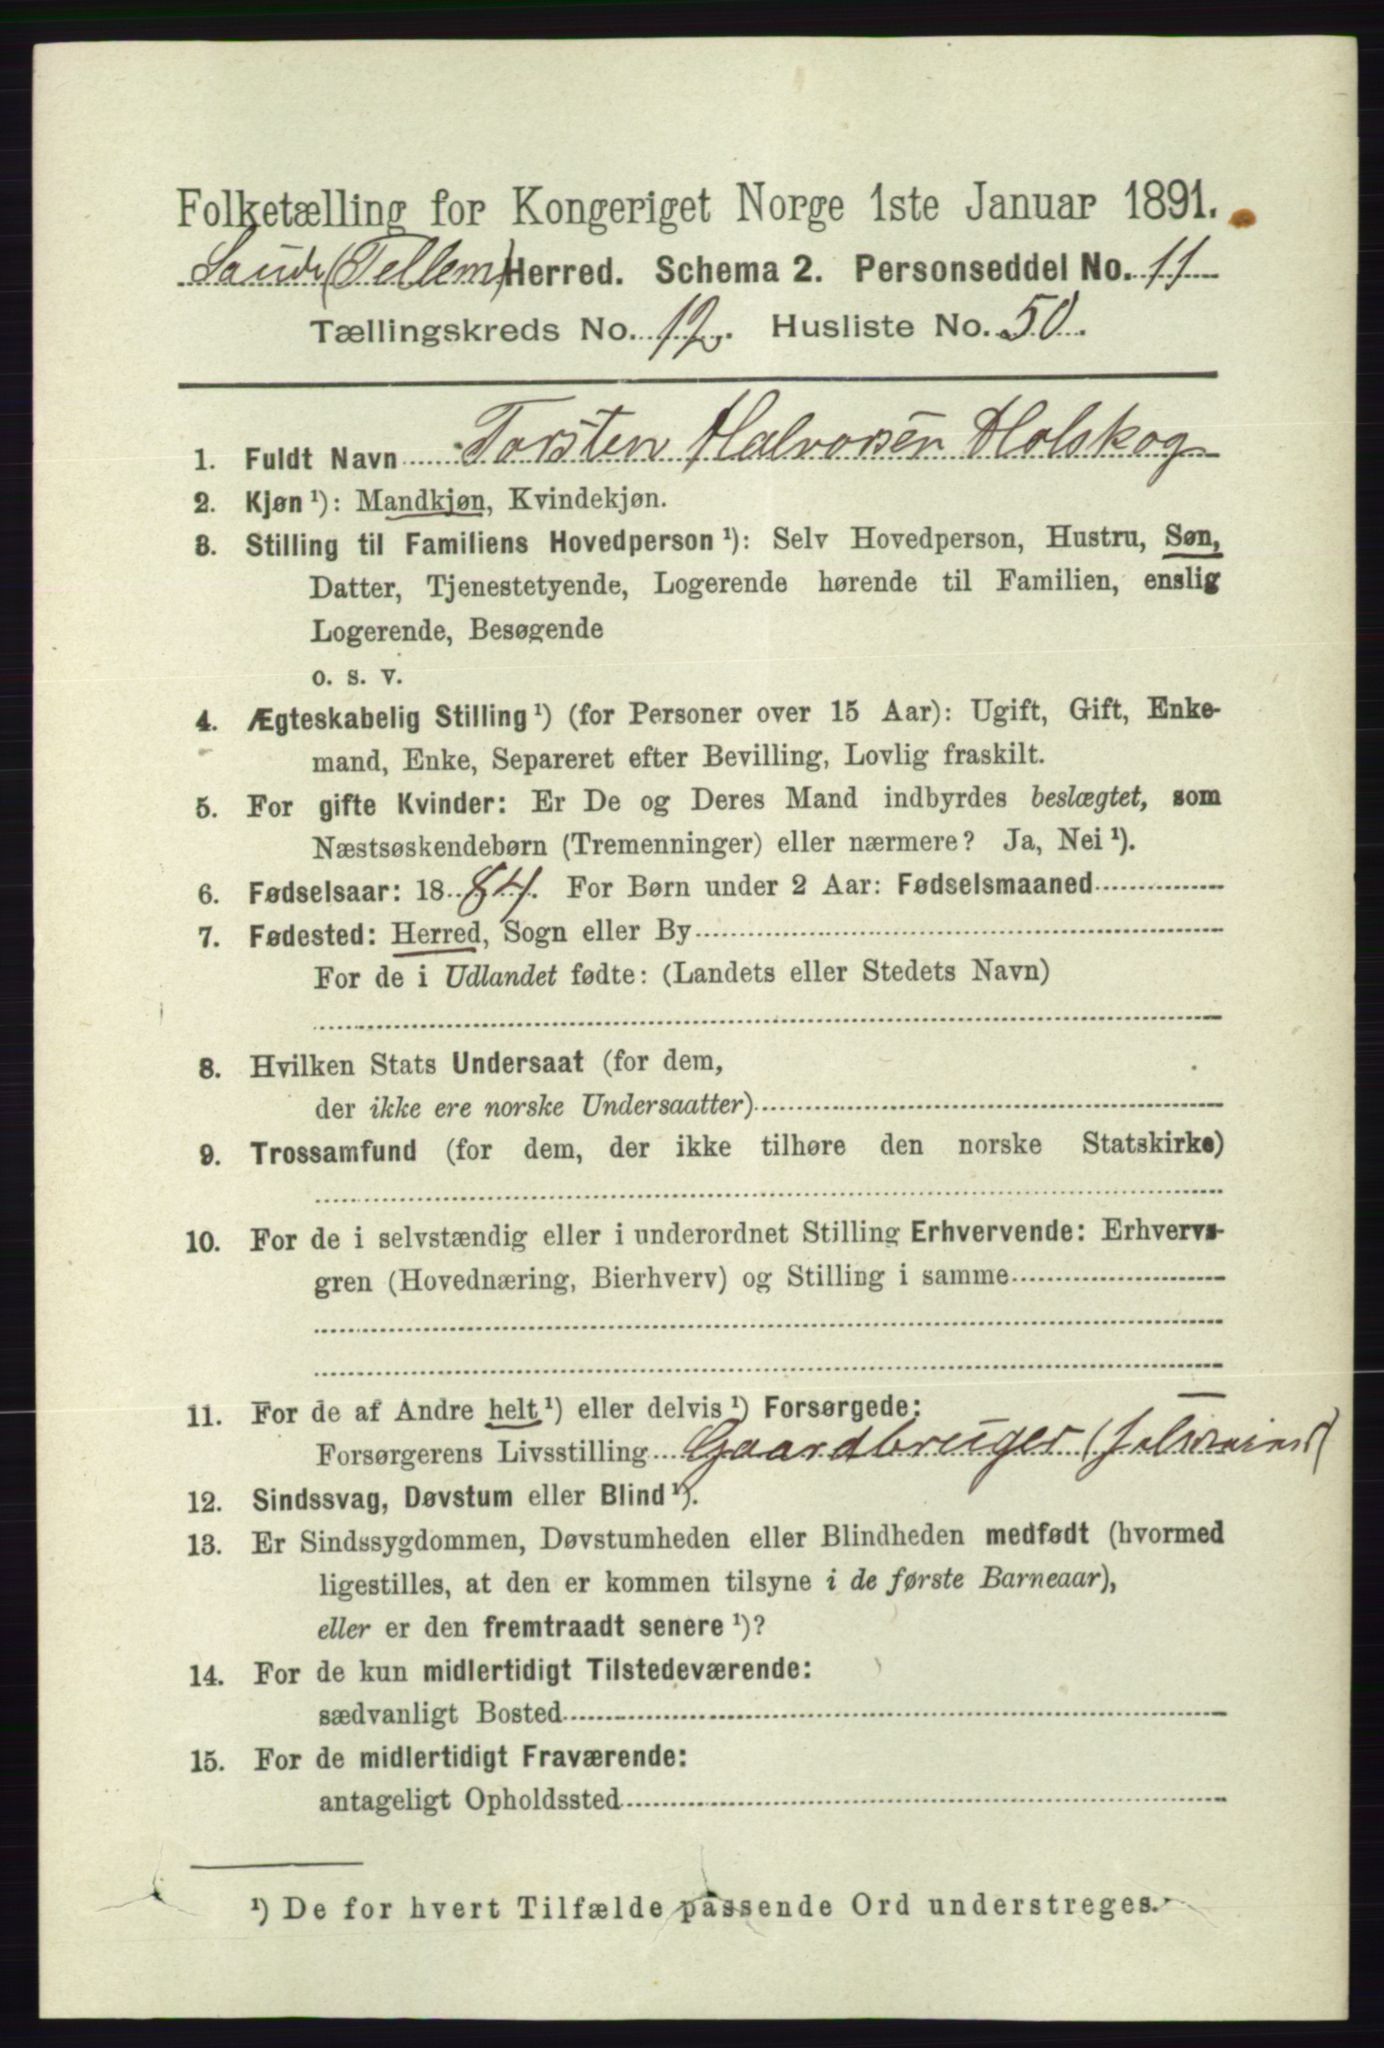 Folketælling for Kongeriget Norge 1ste Januar 1891.
Saude (Tellem) Herred. Schema 2. Personseddel No. 11
Tællingskreds No. 12. Husliste No. 50.
1. Fuldt Navn Torsten Halvorsen Holskog
2. Kjøn ¹): Mandkjøn, Kvindekjøn.
3. Stilling til Familiens Hovedperson ¹): Selv Hovedperson, Hustru, Søn,
Datter, Tjenestetyende, Logerende hørende til Familien, enslig
Logerende, Besøgende
o. s. v.
4. Ægteskabelig Stilling ¹) (for Personer over 15 Aar): Ugift, Gift, Enke-
mand, Enke, Separeret efter Bevilling, Lovlig fraskilt.
5. For gifte Kvinder: Er De og Deres Mand indbyrdes beslægtet, som
Næstsøskendebørn (Tremenninger) eller nærmere? Ja, Nei ¹).
6. Fødselsaar: 1884. For Børn under 2 Aar: Fødselsmaaned
7. Fødested: Herred, Sogn eller By
For de i Udlandet fødte: (Landets eller Stedets Navn)
8. Hvilken Stats Undersaat (for dem,
der ikke ere norske Undersaatter)
9. Trossamfund (for dem, der ikke tilhøre den norske Statskirke)
10. For de i selvstændig eller i underordnet Stilling Erhvervende: Erhvervs-
gren (Hovednæring, Bierhverv) og Stilling i samme
11. For de af Andre helt ¹) eller delvis ¹) Forsørgede:
Forsørgerens Livsstilling Gaardbruger (Selveiend)
12. Sindssvag, Døvstum eller Blind ¹).
13. Er Sindssygdommen, Døvstumheden eller Blindheden medfødt (hvormed
ligestilles, at den er kommen tilsyne i de første Barneaar),
eller er den fremtraadt senere ¹)?
14. For de kun midlertidigt Tilstedeværende:
sædvanligt Bosted
15. For de midlertidigt Fraværende:
antageligt Opholdssted
¹) De for hvert Tilfælde passende Ord understreges.